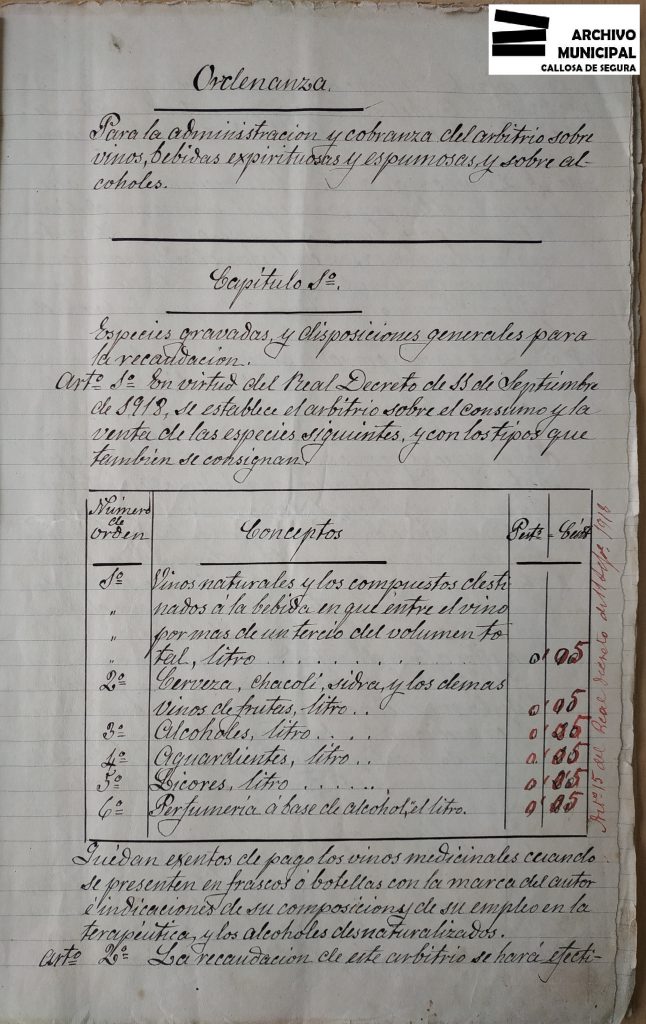 ARCHIVO
MUNICIPAL
CALLOSA DE SEGURA
Ordenanza.
Para la administracion y cobranza del arbitrio sobre
vinos, bebidas expirituosas y espumosas, y sobre al-
coholes.
Capítulo 1º.
Especies gravadas, y disposiciones generales para
la recaudacion.
Artº 1º En virtud del Real Decreto de 11 de Septiembre
de 1918, se establece el arbitrio sobre el consumo y la
venta de las especies siguientes, y con los tipos que
tambien se consignan.
Número de orden Conceptos Pestˢ Cént
1º Vinos naturales y los compuestos desti
" nados á la bebida en que entre el vino
" por mas de un tercio del volumen to-
" tal, litro . . . . . . . . . . 0'05
2º Cerveza, chacolí, sidra, y los demas
vinos de frutas, litro . . 0'05
3º Alcoholes, litro . . . .
4º Aguardientes, litro . .
5º Licores, litro . . . . . .
6º Perfumería á base de alcohol, el litro.
Artº 15 del Real Decreto de 11 Sepe 1918
Quédan exentos de pago los vinos medicinales cuando
se presenten en frascos ó botellas con la marca del autor
é indicaciones de su composicion y de su empleo en la
terapéutica, y los alcoholes desnaturalizados.
Artº 2º La recaudacion de este arbitrio se hará efecti-